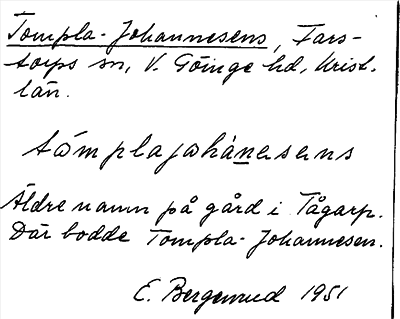 Tompla-Johannesens, Fars-
torps sn, V. Göinge hd, Krist.
län.
tòmplajohànesens
Äldre namn på gård i Tågarp.
Där bodde Tompla-Johannesen.
E. Bergenrud 1951